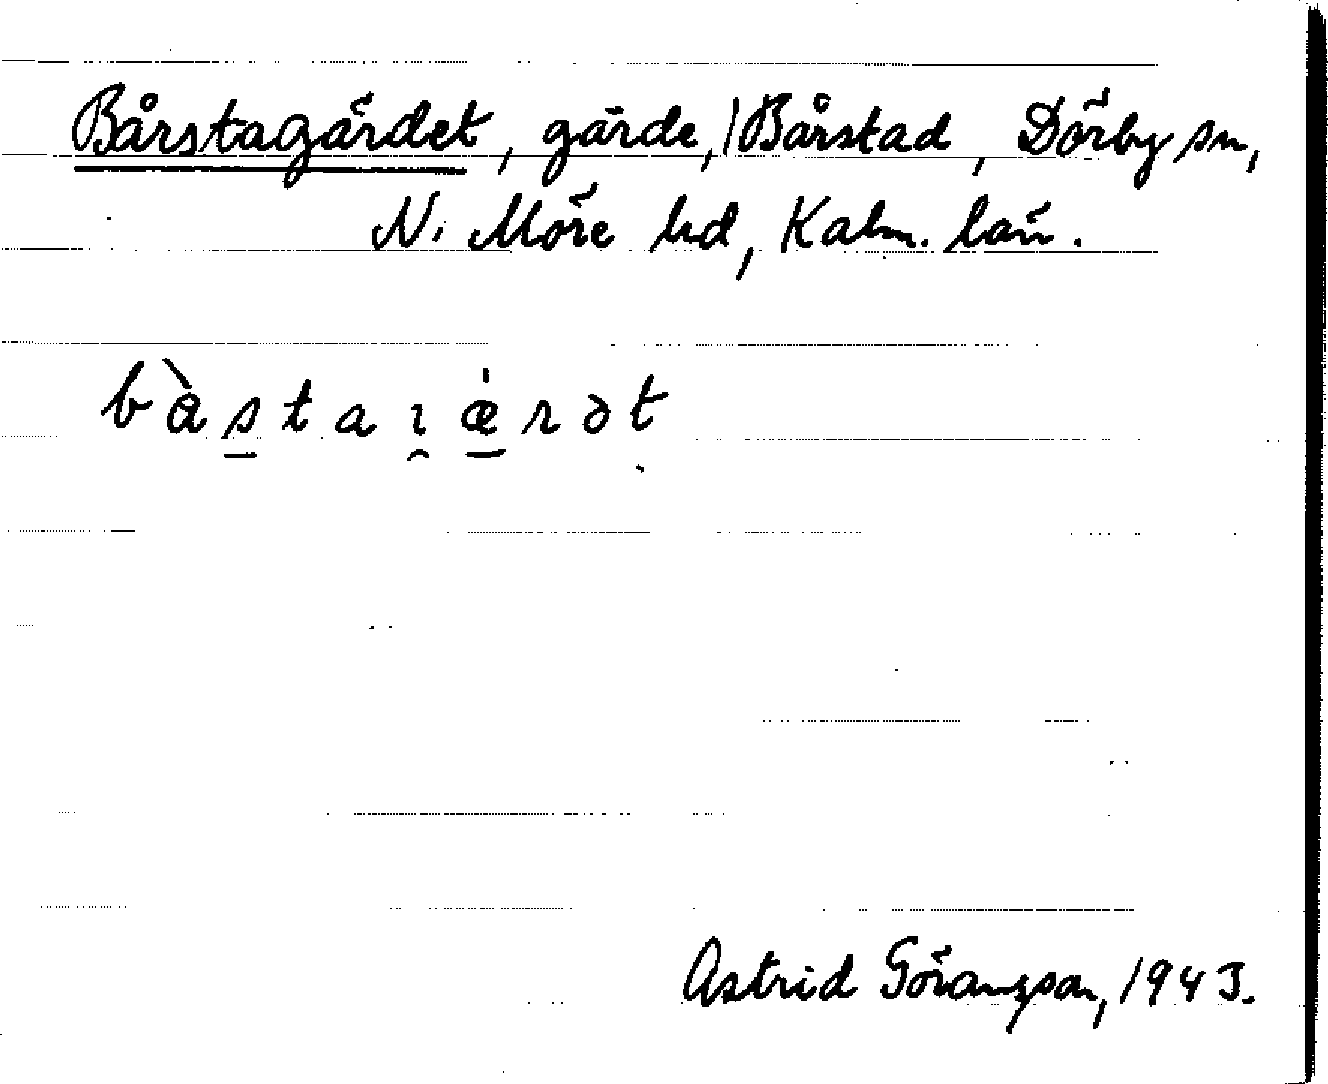 Bårstagärdet, gärde, | Bårstad, Dörby sn,
N. Möre hd, Kalm. län.
bàs̲taı̯æ̲̍rət
Astrid Göransson, 1943.